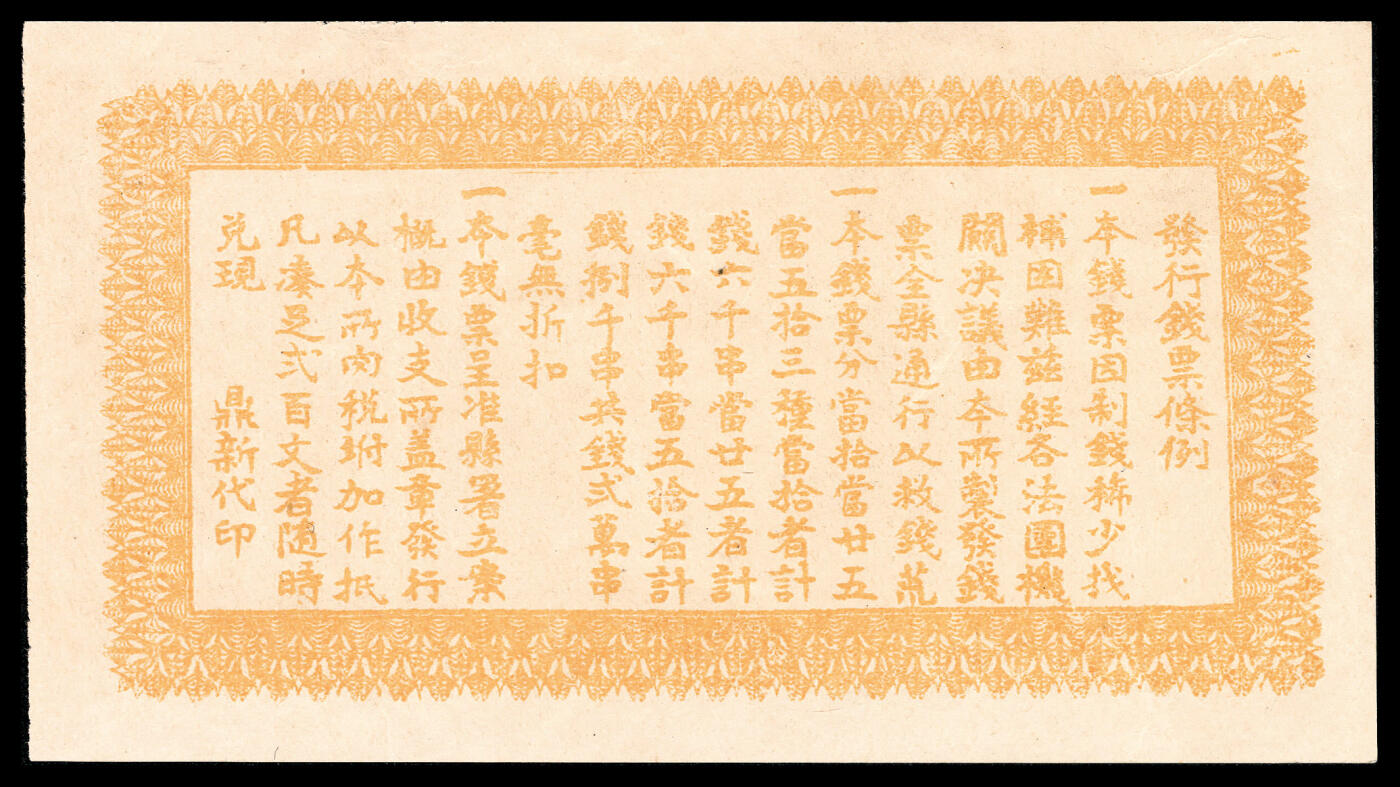 發行錢票條例
一本錢票因制錢稀少找
補困難兹經各法團機
關决議由本所製發錢
票全縣通行以救錢荒
一本錢票分當拾當廿五
當五拾三種當拾者計
錢六千串當廿五者計
錢六千串當五拾者計
錢捌千串共錢弍萬串
毫無折扣
一本錢票呈准縣署立案
概由收支所盖章發行
以本所肉税坿加作抵
凡湊足弍百文者随時
兑現 鼎新代印